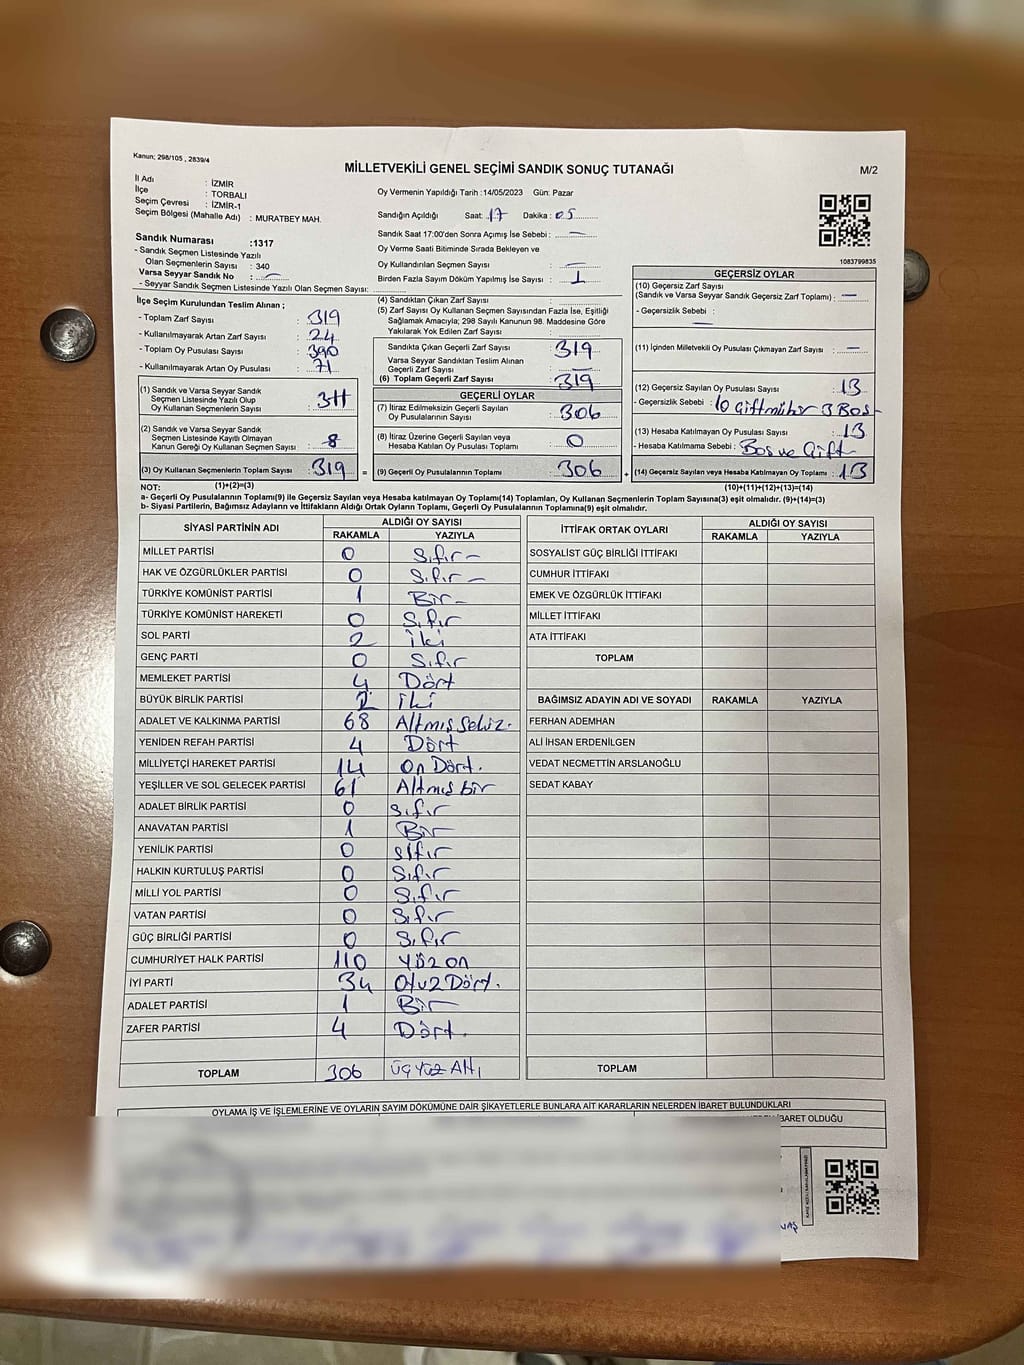 Kanun; 298/105 , 2839/4
MİLLETVEKİLİ GENEL SEÇİMİ SANDIK SONUÇ TUTANAĞI
M/2
İl Adı : İZMİR
İlçe : TORBALI
Seçim Çevresi : İZMİR-1
Seçim Bölgesi (Mahalle Adı) : MURATBEY MAH.
Oy Vermenin Yapıldığı Tarih :14/05/2023 Gün: Pazar
Sandığın Açıldığı Saat: 17 Dakika : 05
Sandık Saat 17:00'den Sonra Açımış İse Sebebi : —
Oy Verme Saati Bitiminde Sırada Bekleyen ve
Oy Kullandırılan Seçmen Sayısı : —
Birden Fazla Sayım Döküm Yapılmış İse Sayısı : 1
1083799835
Sandık Numarası :1317
- Sandık Seçmen Listesinde Yazılı
Olan Seçmenlerin Sayısı : 340
Varsa Seyyar Sandık No : —
- Seyyar Sandık Seçmen Listesinde Yazılı Olan Seçmen Sayısı:
İlçe Seçim Kurulundan Teslim Alınan ;
- Toplam Zarf Sayısı : 319
- Kullanılmayarak Artan Zarf Sayısı : 24
- Toplam Oy Pusulası Sayısı : 390
- Kullanılmayarak Artan Oy Pusulası : 71
(1) Sandık ve Varsa Seyyar Sandık
Seçmen Listesinde Yazılı Olup
Oy Kullanan Seçmenlerin Sayısı : 311
(2) Sandık ve Varsa Seyyar Sandık
Seçmen Listesinde Kayıtlı Olmayan
Kanun Gereği Oy Kullanan Seçmen Sayısı : 8
(3) Oy Kullanan Seçmenlerin Toplam Sayısı : 319 =
(4) Sandıktan Çıkan Zarf Sayısı :
(5) Zarf Sayısı Oy Kullanan Seçmen Sayısından Fazla İse, Eşitliği
Sağlamak Amacıyla; 298 Sayılı Kanunun 98. Maddesine Göre
Yakılarak Yok Edilen Zarf Sayısı :
Sandıkta Çıkan Geçerli Zarf Sayısı : 319
Varsa Seyyar Sandıktan Teslim Alınan
Geçerli Zarf Sayısı : —
(6) Toplam Geçerli Zarf Sayısı : 319
GEÇERLİ OYLAR
(7) İtiraz Edilmeksizin Geçerli Sayılan
Oy Pusulalarının Sayısı : 306
(8) İtiraz Üzerine Geçerli Sayılan veya
Hesaba Katılan Oy Pusulası Sayısı : 0
(9) Geçerli Oy Pusulalarının Toplamı : 306 +
GEÇERSİZ OYLAR
(10) Geçersiz Zarf Sayısı
(Sandık ve Varsa Seyyar Sandık Geçersiz Zarf Toplamı) : —
- Geçersizlik Sebebi :
—
(11) İçinden Milletvekili Oy Pusulası Çıkmayan Zarf Sayısı : —
(12) Geçersiz Sayılan Oy Pusulası Sayısı : 13
- Geçersizlik Sebebi : 10 Çiftmühür 3 Boş
(13) Hesaba Katılmayan Oy Pusulası Sayısı : 13
- Hesaba Katılmama Sebebi : Boş ve Çift
(14) Geçersiz Sayılan veya Hesaba Katılmayan Oy Toplamı : 13
NOT: (1)+(2)=(3)
(10)+(11)+(12)+(13)=(14)
a- Geçerli Oy Pusulalarının Toplamı(9) ile Geçersiz Sayılan veya Hesaba katılmayan Oy Toplamı(14) Toplamları, Oy Kullanan Seçmenlerin Toplam Sayısına(3) eşit olmalıdır. (9)+(14)=(3)
b- Siyasi Partilerin, Bağımsız Adayların ve İttifakların Aldığı Ortak Oyların Toplamı, Geçerli Oy Pusulalarının Toplamına(9) eşit olmalıdır.
SİYASİ PARTİNİN ADI ALDIĞI OY SAYISI
RAKAMLA YAZIYLA
MİLLET PARTİSİ 0 Sıfır —
HAK VE ÖZGÜRLÜKLER PARTİSİ 0 Sıfır —
TÜRKİYE KOMÜNİST PARTİSİ 1 Bir —
TÜRKİYE KOMÜNİST HAREKETİ 0 Sıfır
SOL PARTİ 2 iki
GENÇ PARTİ 0 Sıfır
MEMLEKET PARTİSİ 4 Dört
BÜYÜK BİRLİK PARTİSİ 2 iki
ADALET VE KALKINMA PARTİSİ 68 Altmışsekiz.
YENİDEN REFAH PARTİSİ 4 Dört
MİLLİYETÇİ HAREKET PARTİSİ 14 On Dört.
YEŞİLLER VE SOL GELECEK PARTİSİ 61 Altmış bir
ADALET BİRLİK PARTİSİ 0 sıfır
ANAVATAN PARTİSİ 1 Bir
YENİLİK PARTİSİ 0 sıfır
HALKIN KURTULUŞ PARTİSİ 0 Sıfır
MİLLİ YOL PARTİSİ 0 Sıfır
VATAN PARTİSİ 0 Sıfır
GÜÇ BİRLİĞİ PARTİSİ 0 Sıfır
CUMHURİYET HALK PARTİSİ 110 Yüz on
İYİ PARTİ 34 Otuz Dört.
ADALET PARTİSİ 1 Bir
ZAFER PARTİSİ 4 Dört.
TOPLAM 306 ÜÇ YÜZ ALTI
İTTİFAK ORTAK OYLARI ALDIĞI OY SAYISI
RAKAMLA YAZIYLA
SOSYALİST GÜÇ BİRLİĞİ İTTİFAKI
CUMHUR İTTİFAKI
EMEK VE ÖZGÜRLÜK İTTİFAKI
MİLLET İTTİFAKI
ATA İTTİFAKI
TOPLAM
BAĞIMSIZ ADAYIN ADI VE SOYADI RAKAMLA YAZIYLA
FERHAN ADEMHAN
ALİ İHSAN ERDENİLGEN
VEDAT NECMETTİN ARSLANOĞLU
SEDAT KABAY
TOPLAM
OYLAMA İŞ VE İŞLEMLERİNE VE OYLARIN SAYIM DÖKÜMÜNE DAİR ŞİKAYETLERLE BUNLARA AİT KARARLARIN NELERDEN İBARET BULUNDUKLARI
İBARET OLDUĞU